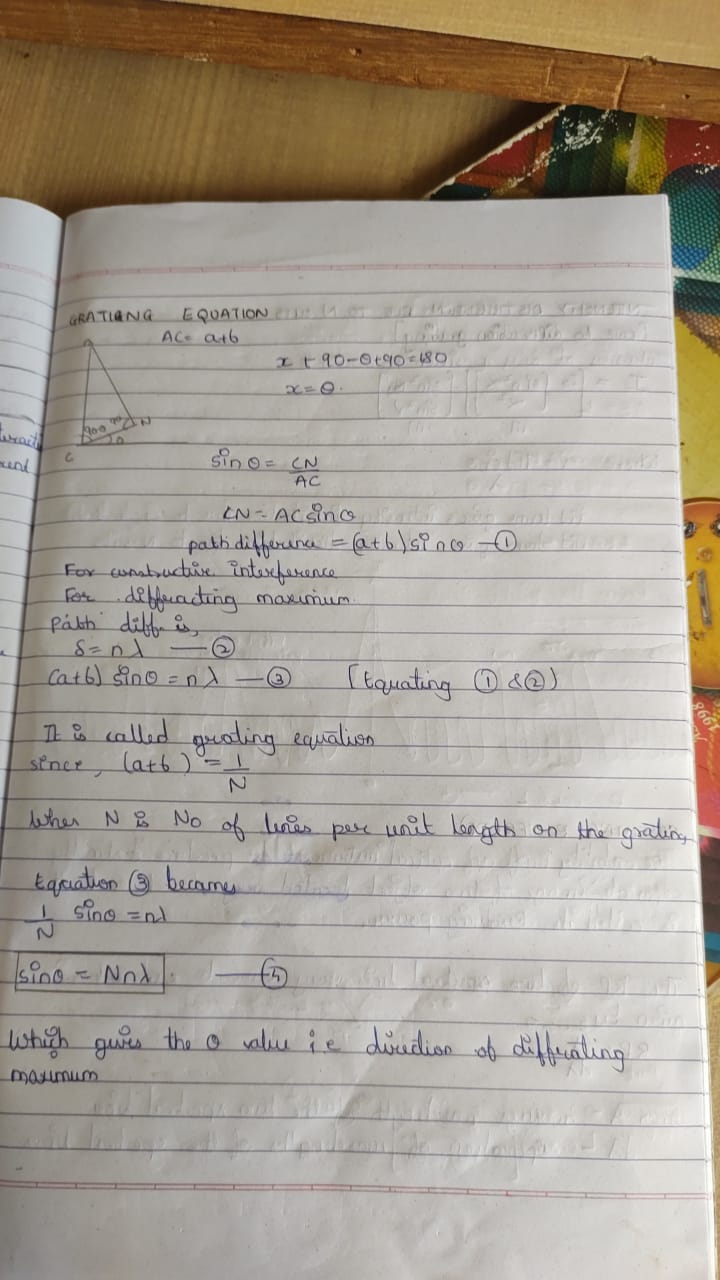 GRATIANG EQUATION
AC= a+b
x + 90-θ+90=180
x=θ.
A
90° N
90-θ
θ
C
sinθ = CN/AC
CN = AC sinθ
path difference = (a+b) sinθ —①
For constructive interference
For diffracting maximum.
Path diff is,
δ = nλ —②
(a+b) sinθ = nλ —③ [Equating ① & ②)
It is called grating equation
since, (a+b) = 1/N
Wher N is No of lines per unit length on the grating
Equation ③ becomes
1/N sinθ = nλ
sinθ = Nnλ. —④
Which gives the θ value i.e direction of diffrating
maximum